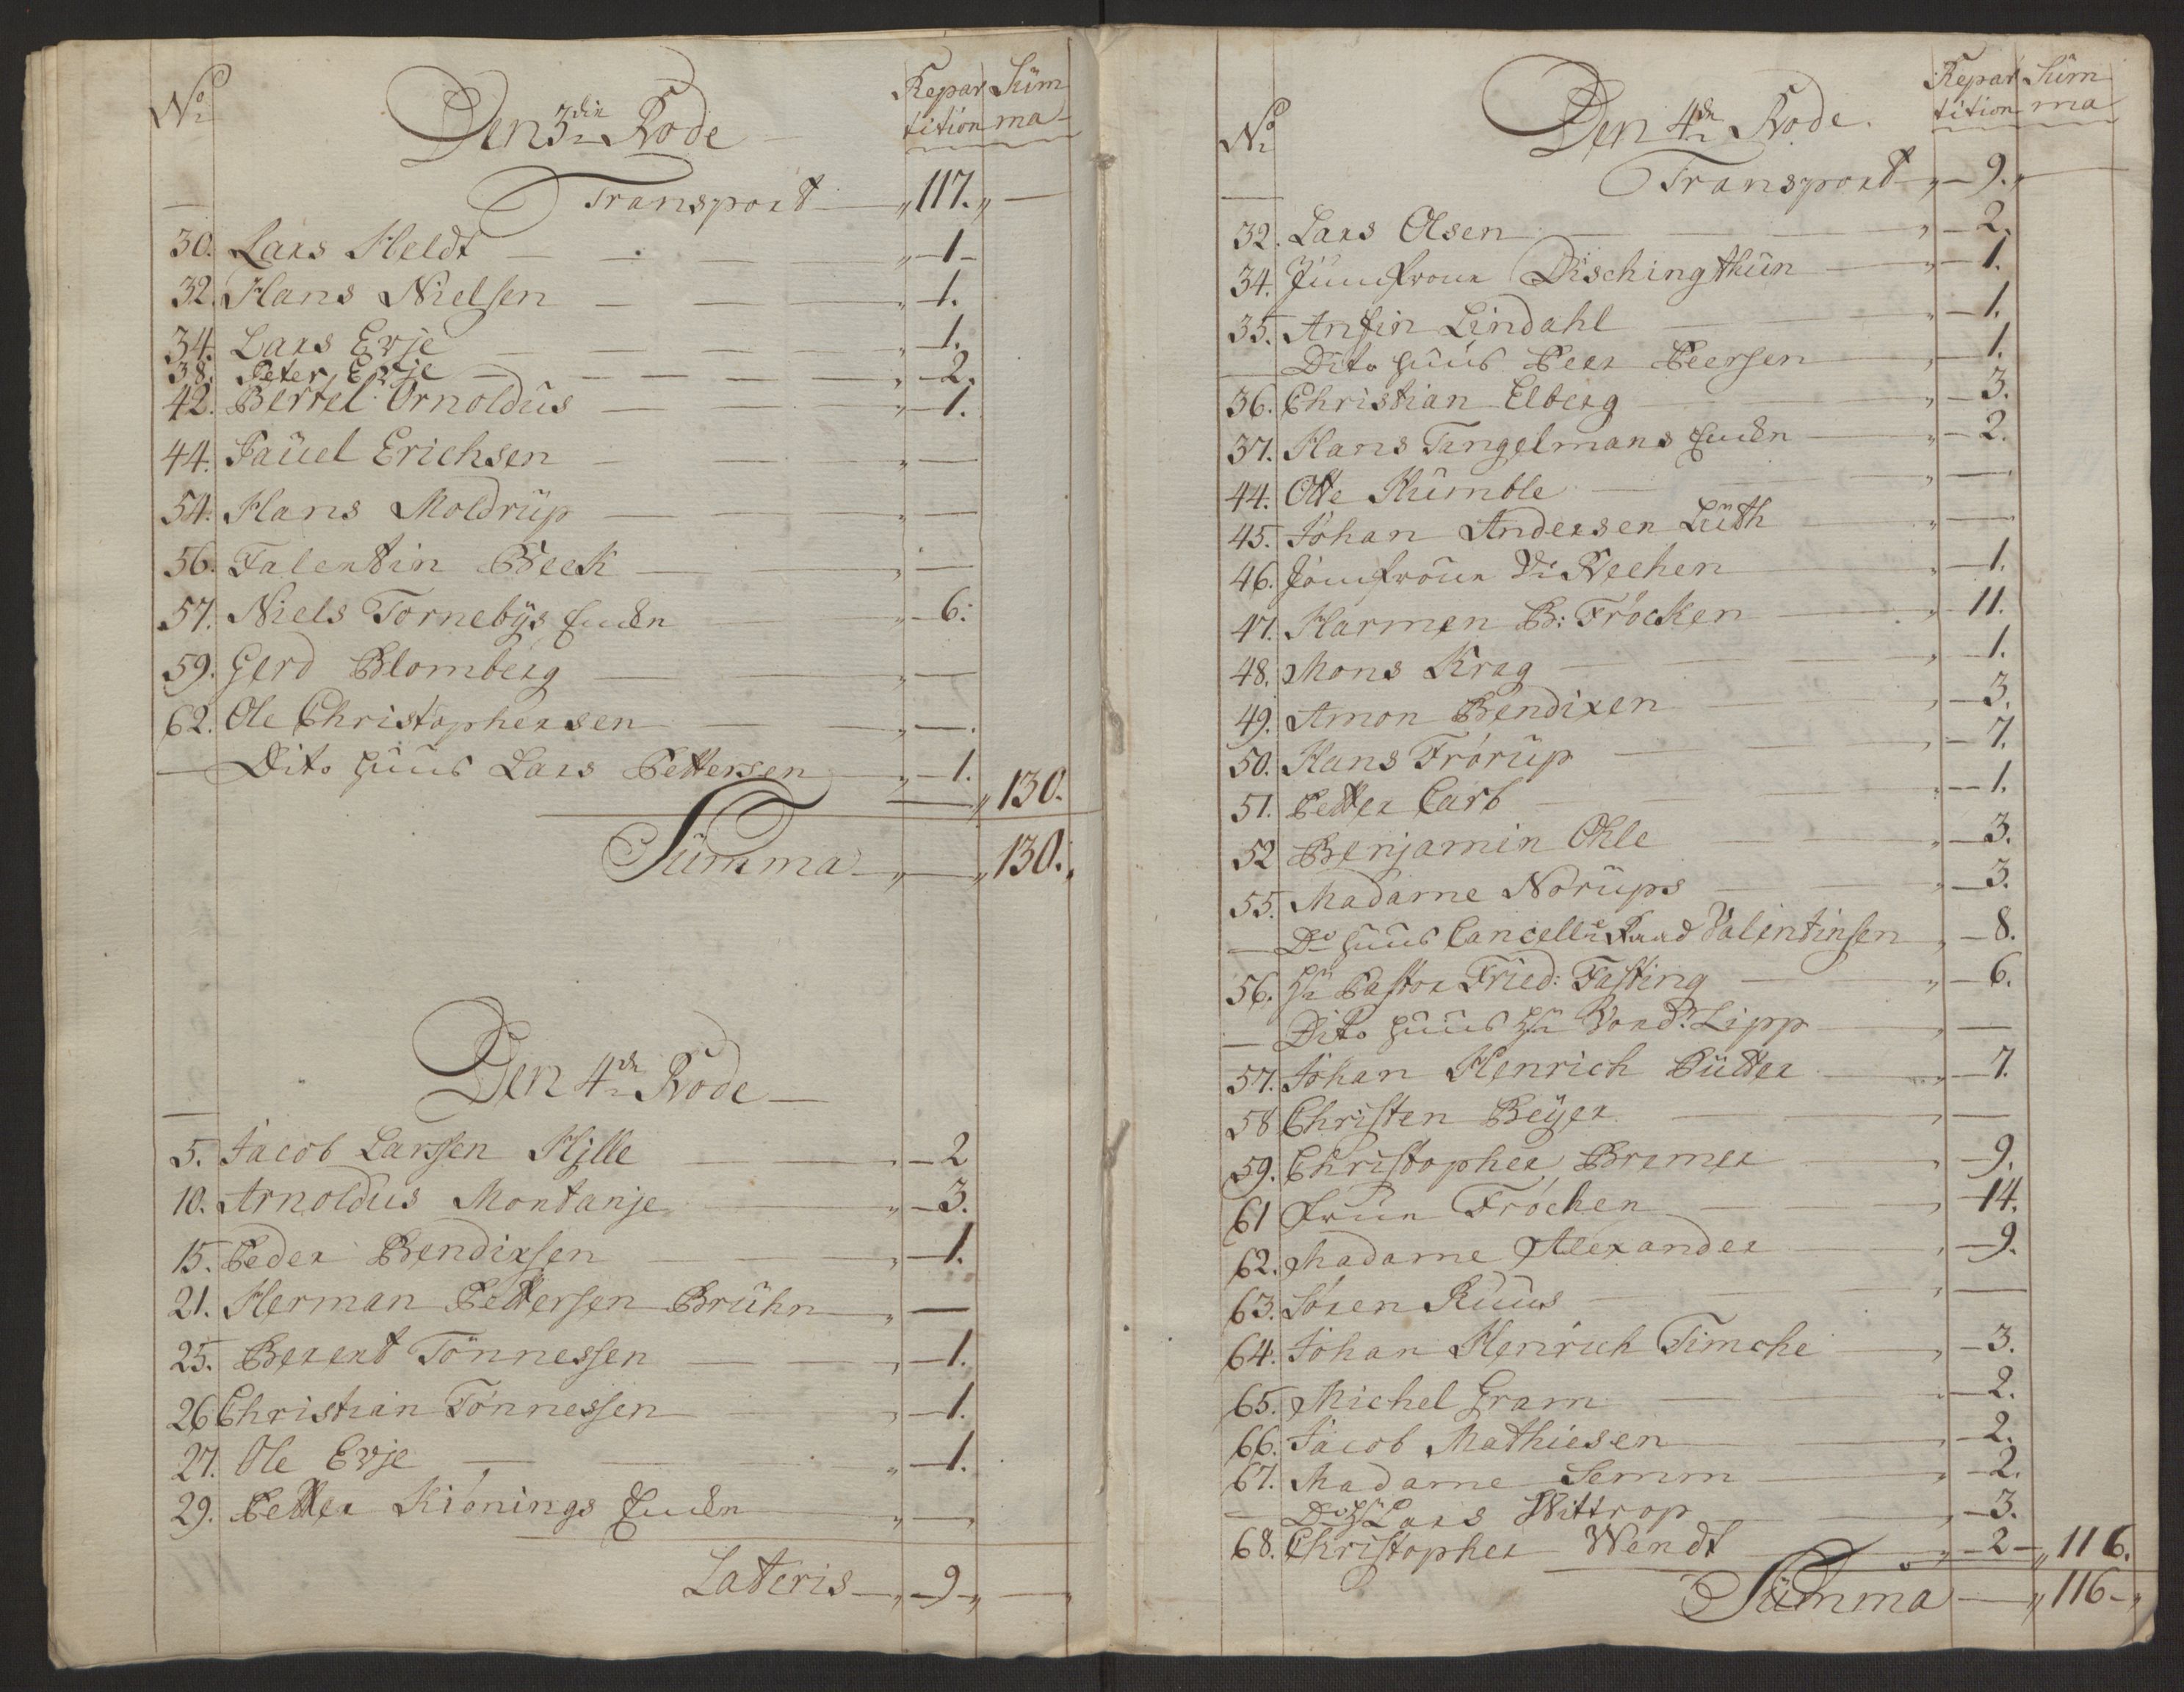 No
Den 3die Rode
Repar Sum
tition ma
Transport „ 117. „ —
30. Lars Heldt — „ — 1 —
32. Hans Nielsen — „ — 1.
34. Lars Evje — „ — 1.
38. Peter Evje — „ — 2.
42. Bertel Ornoldus — „ — 1.
44. Pauel Erichsen — „ —
54. Hans Moldrüp — „ —
56. Falentin Beek — „ —
57. Niels Tornebÿs Enckn — „ — 6.
59. Gerd Blomberg — „ —
62. Ole Christophersen — „ —
— Dito Huus Lars Pettersen — „ — 1.
— „ 130.
Summa — „ — „ 130. „
Den 4de Rode —
5. Jacob Larssen Hille — „ — 2
10. Arnoldus Montanje — „ — 3.
15. Peder Bendixsen — „ — 1.
21. Herman Pettersen Brühn — „ —
25. Berent Tönnessen — „ — 1.
26 Christian Tönnessen — „ — 1.
27. Ole Evje — „ — 1.
29. Petter Kiönings Enckn — „ —
Lateris — „ — 9 — „ —
No
Den 4de Rode.
Repar Sum
tition ma
Transport „ — 9. „ —
32. Lars Olsen — „ — 2.
34. Jumfroue Dischingthun — „ — 1.
35. Anfin Lindahl — „ — 1.
— Dito Huus Peer Peersen — „ — 1.
36. Christian Elberg — „ — 3.
37. Hans Tangelmans Enckn — „ — 2.
44. Otte Kumble — „ —
45. Johan Andersen Lüth — „ —
46. Jomfroue Vechen — „ — 1.
47. Harmen B: Fröcken — „ — 11.
48. Mons Krag — „ — 1.
49. Amon Bendixen — „ — 3.
50. Hans Frörup — „ — 7.
51. Petter Carb — „ — 1.
52 Benjamin Ohle — „ — 3.
55. Madame Norups — „ — 3.
— Do Huus Cancellie Raad Valentinsen „ — 8.
56. Hr Pastor Fried: Fasting — „ — 6.
— Dito Huus Hr Lipp — „ —
57. Johan Henrich Pütter — „ — 7.
58 Christen Beÿer — „ —
59. Christopher Bremer — „ — 9.
61 Frue Fröchen — „ — 14.
62. Madame Alexander — „ — 9.
63. Sören Ruus — „ —
64. Johan Henrich Timche — „ — 3.
65. Michel Gram — „ — 2.
66. Jacob Mathiesen — „ — 2.
67. Madame Semm — „ — 2.
— Do Hr Lars Wittrop — „ — 3.
68. Christopher Wendt — „ — 2 — „ 116.
Summa — „ 116 — „